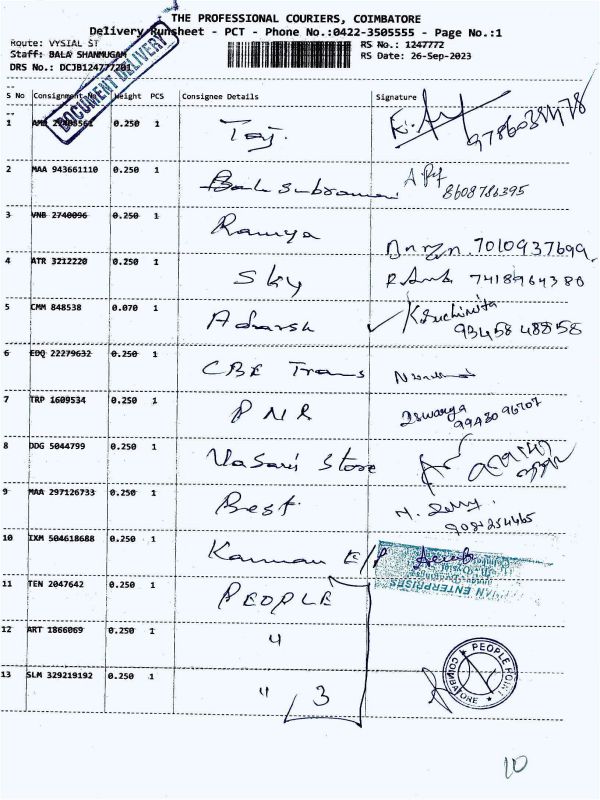 THE PROFESSIONAL COURIERS, COIMBATORE
Delivery Runsheet - PCT - Phone No.:0422-3505555 - Page No.:1
Route: VYSIAL ST RS No.: 1247772
Staff: BALA SHANMUGAM RS Date: 26-Sep-2023
DRS No.: DCJB124777201
DOCUMENT DELIVERY
S No Consignment No Weight PCS Consignee Details Signature
1 0.250 1 Taj.
2 MAA 943661110 0.250 1 Balasubramani 8608786395
3 VNB 2740096 0.250 1 Ramya 7010937699
4 ATR 3212220 0.250 1 Sky 7418964380
5 CMM 848538 0.070 1 Adharsh K. Suchimita
93458 48858
6 EDQ 22279632 0.250 1 CBE Trans
7 TRP 1609534 0.250 1 PNR Iswarya
8 DDG 5044799 0.250 1 Vasavi Store
9 MAA 297126733 0.250 1 Best
10 IXM 504618688 0.250 1 Kannan E/P
11 TEN 2047642 0.250 1 PEOPLE
12 ART 1866069 0.250 1 "
13 SLM 329219192 0.250 1 " 3
PEOPLE POINT
COIMBATORE
10